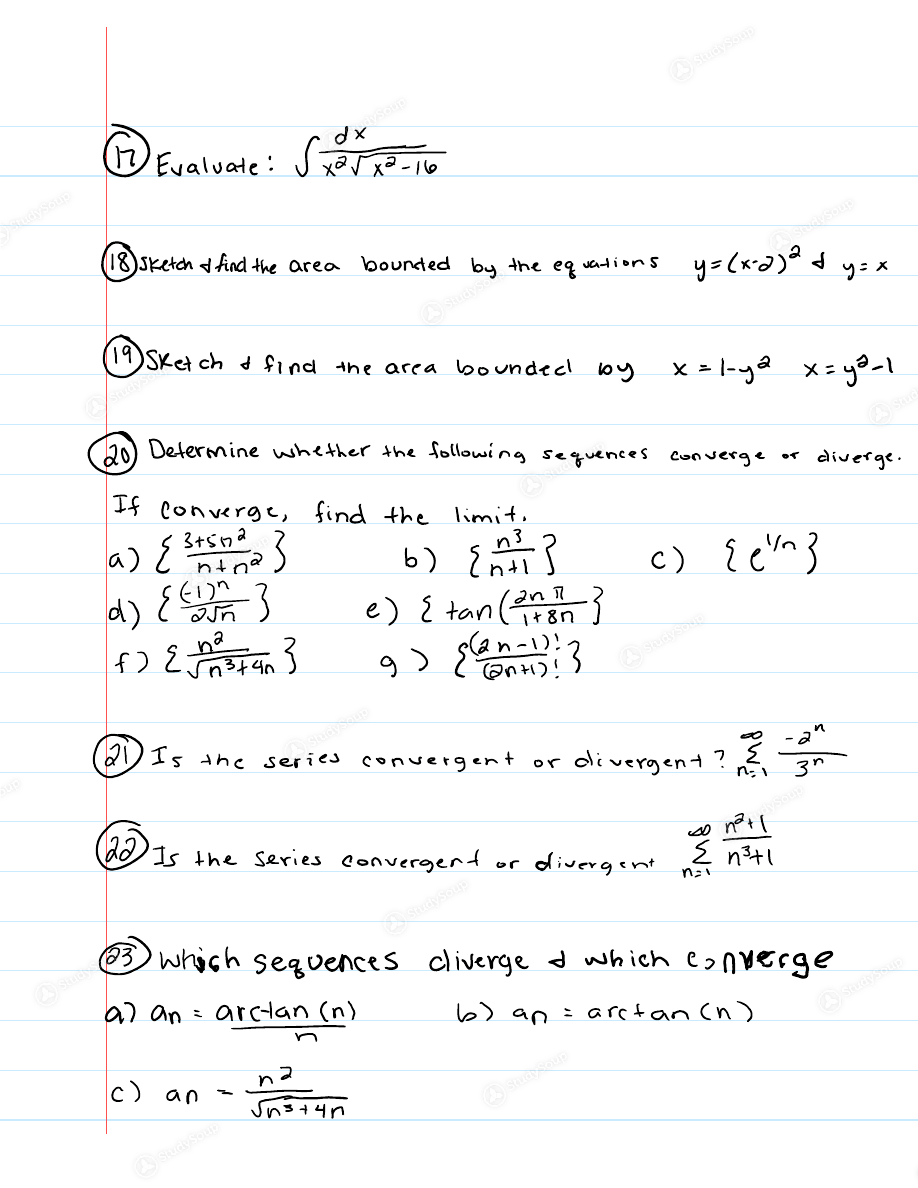 17 Evaluate: ∫ dx / x²√x²-16
18 Sketch & find the area bounded by the equations y=(x-2)² & y=x
19 Sketch & find the area bounded by x=1-y² x=y²-1
20 Determine whether the following sequences converge or diverge.
If converge, find the limit.
a) {3+5n² / n+n²} b) {n³ / n+1} c) {e^1/n}
d) {(-1)ⁿ / 2√n} e) {tan(2nπ / 1+8n}
f) {n² / √n³+4n} g) {(2n-1)! / (2n+1)!}
21 Is the series convergent or divergent? ∞ Σ n=1 -2ⁿ / 3ⁿ
22 Is the series convergent or divergent ∞ Σ n=1 n²+1 / n³+1
23 Which sequences diverge & which converge
a) an = arctan(n) / n b) an = arctan(n)
c) an = n² / √n³+4n
StudySoup